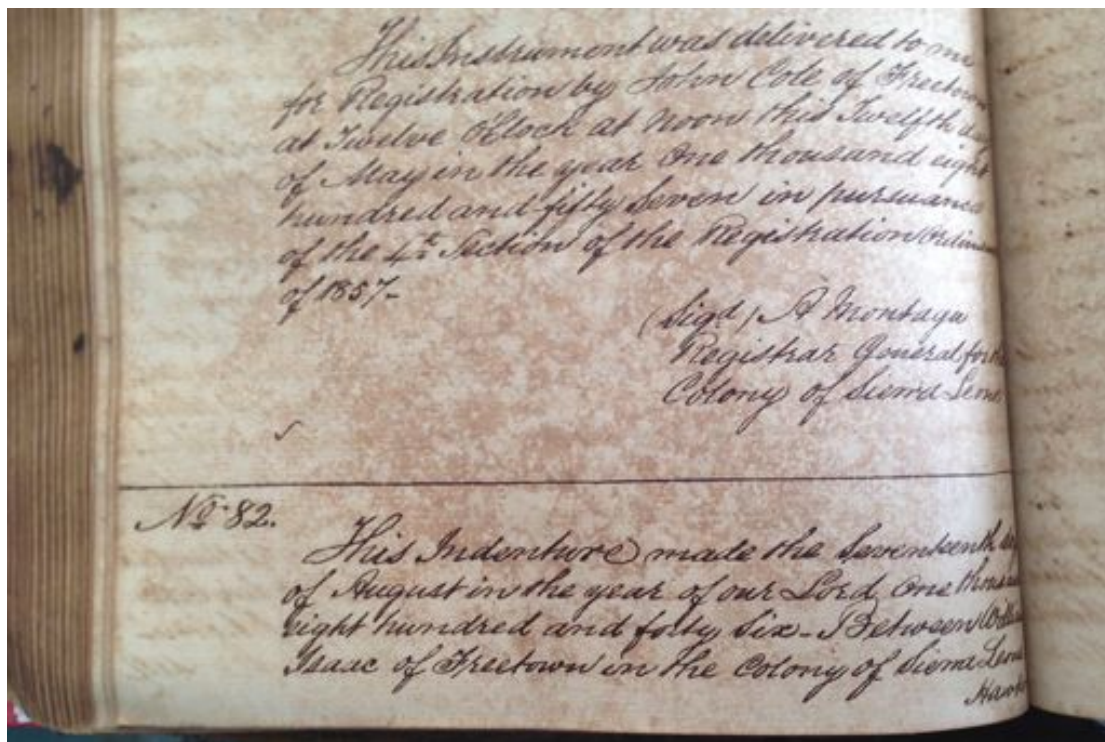 This Instrument was delivered to me
for Registration by John Cole of Freetown
at Twelve O'Clock at Noon this Twelfth day
of May in the year One thousand eight
hundred and fifty Seven in pursuance
of the 4th Section of the Registration
of 1857-
(Sigd) A Montagu
Registrar General for the
Colony of Sierra Leone
No. 82.
This Indenture made the Seventeenth day
of August in the year of our Lord One
eight hundred and forty Six - Between
Isaac of Freetown in the Colony of Sierra Leone